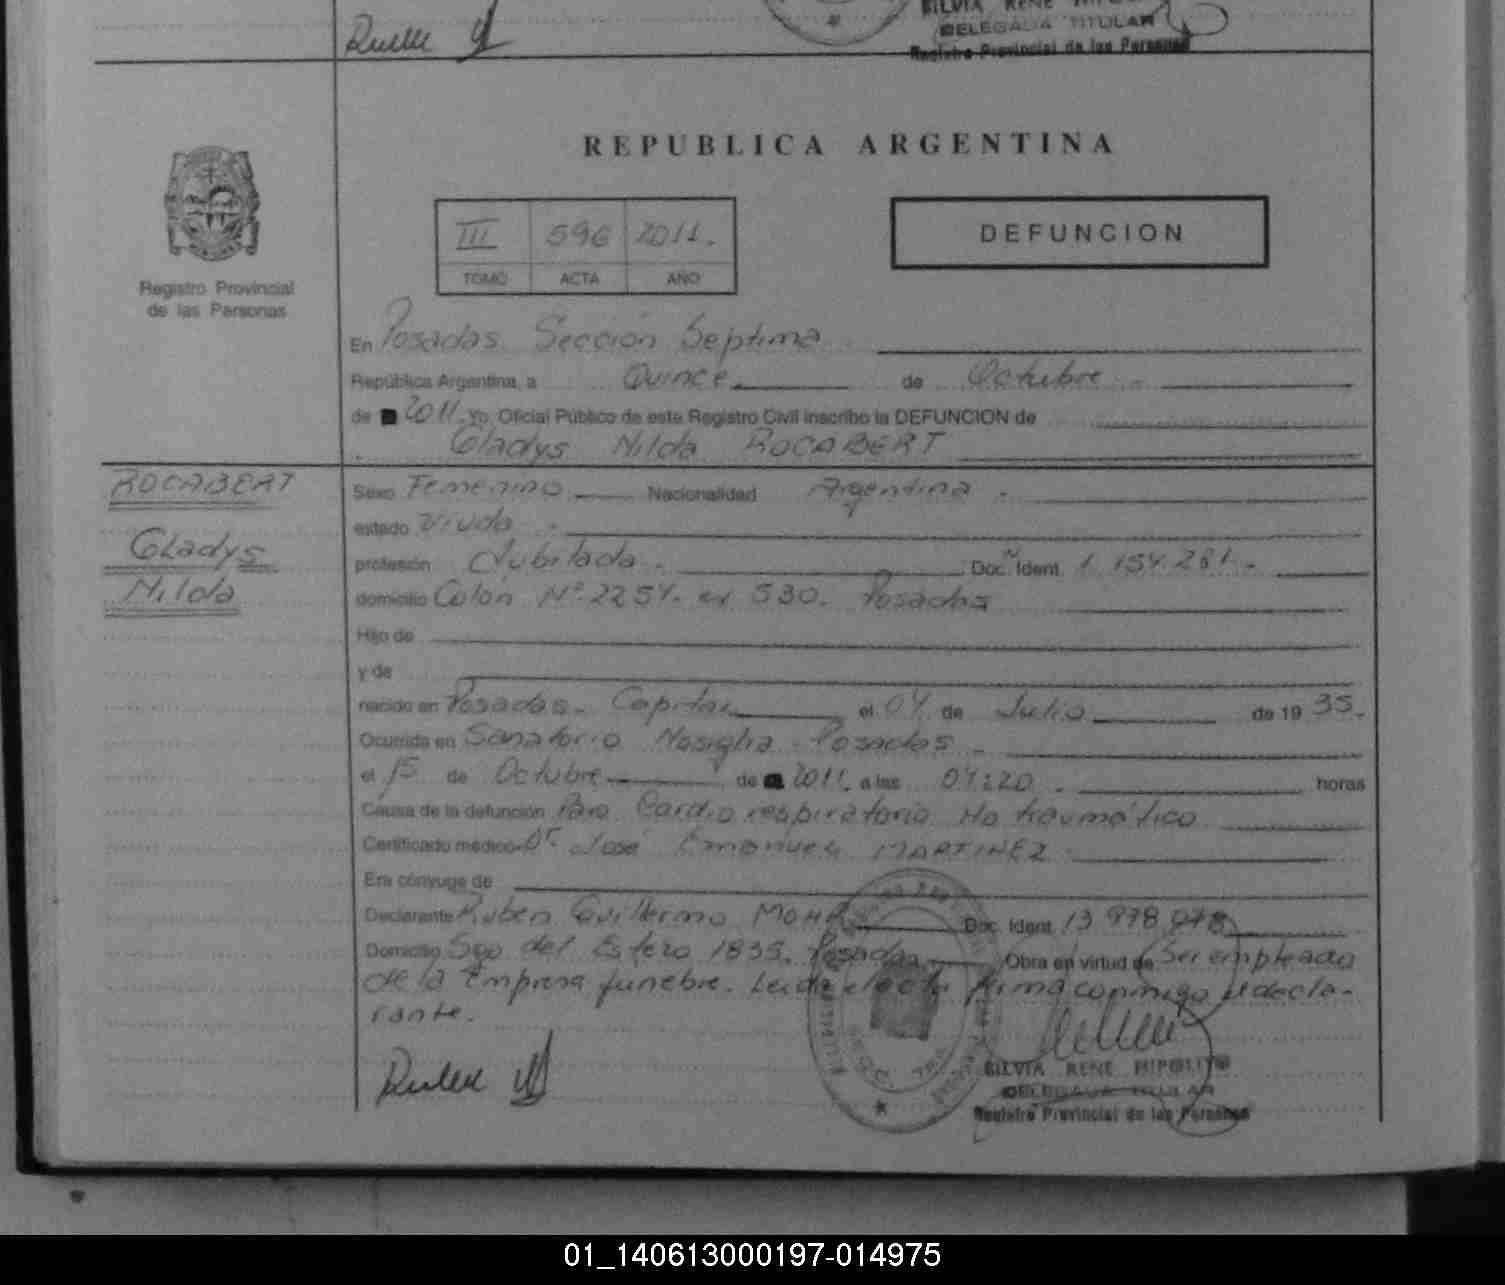 SILVIA RENE HIPOLITO
DELEGADA TITULAR
Registro Provincial de las Personas
REPUBLICA ARGENTINA
III 596 2011.
TOMO ACTA AÑO
DEFUNCION
Registro Provincial
de las Personas
En Posadas Sección Septima
República Argentina, a Quince de Octubre
de 2011. Yo, Oficial Público de este Registro Civil inscribo la DEFUNCION de
Gladys Nilda ROCABERT
ROCABERT
Gladys
Nilda
Sexo Femenino Nacionalidad Argentina.
estado Viuda.
profesión Jubilada. Doc. Nº Ident. 1.154.281.-
domicilio Colon Nº 2254. ex 530. Posadas
Hijo de
y de
nacido en Posadas. Capital el 04 de Julio de 19 35.
Ocurrida en Sanatorio Nosiglia - Posadas -
el 15 de Octubre de 2011. a las 04:20 horas
Causa de la defunción Paro Cardio respiratorio No traumático
Certificado médico Dr José Emanuel MARTINEZ
Era cónyuge de
Declarante Ruben Guillermo MOHR Doc. Ident. 13 978 078
Domicilio Sgo del Estero 1835. Posadas Obra en virtud de Ser empleado
de la Empresa funebre. Leida el acta firma conmigo el decla-
rante.
SILVIA RENE HIPOLITO
DELEGADA TITULAR
Registro Provincial de las Personas
01_140613000197-014975